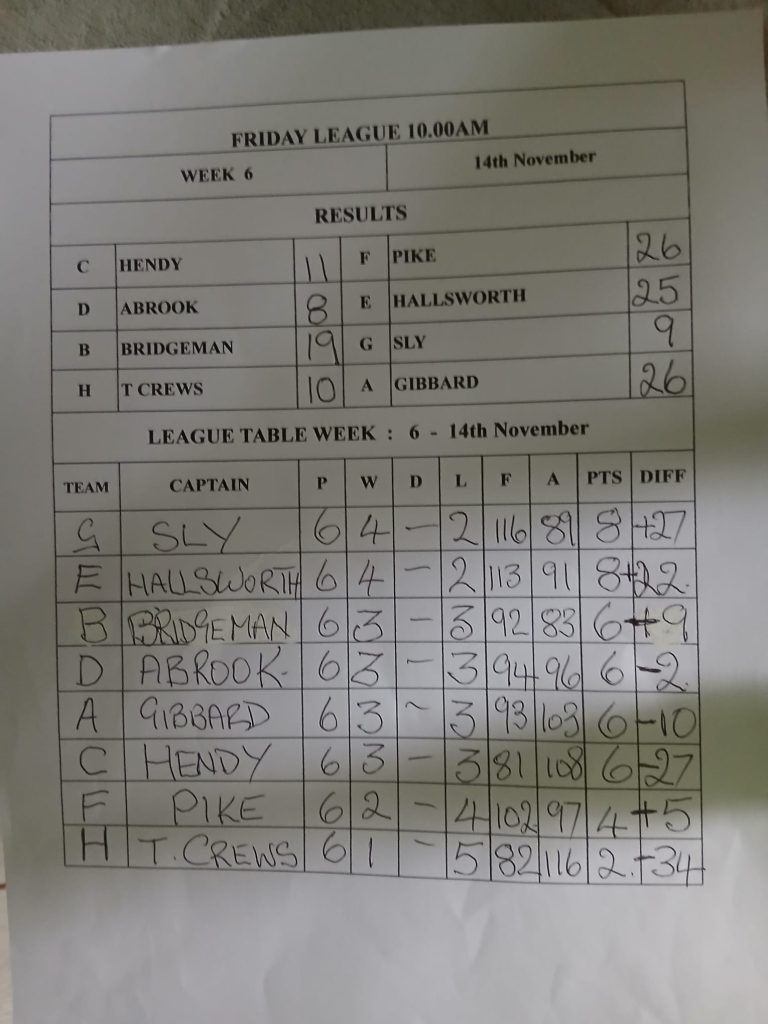 FRIDAY LEAGUE 10.00AM
WEEK 6 14th November
RESULTS
C HENDY 11 F PIKE 26
D ABROOK 8 E HALLSWORTH 25
B BRIDGEMAN 19 G SLY 9
H T CREWS 10 A GIBBARD 26
LEAGUE TABLE WEEK : 6 - 14th November
TEAM CAPTAIN P W D L F A PTS DIFF
G SLY 6 4 - 2 116 89 8 +27
E HALLSWORTH 6 4 - 2 113 91 8 +22.
B BRIDGEMAN 6 3 - 3 92 83 6 +9
D ABROOK. 6 3 - 3 94 96 6 -2.
A GIBBARD 6 3 - 3 93 103 6 -10
C HENDY 6 3 - 3 81 108 6 -27
F PIKE 6 2 - 4 102 97 4 +5
H T. CREWS 6 1 - 5 82 116 2. -34